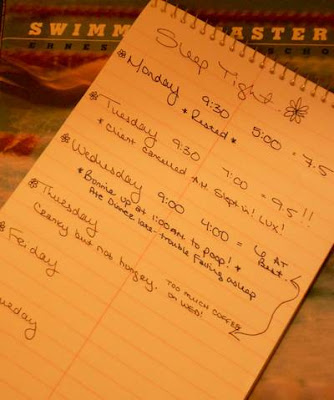 SWIMM ASTER
ERNES SCHO
Sleep Tight
Monday 9:30 5:00 = 7.5
* Rested *
Tuesday 9:30 7:00 = 9.5!!
* Client cancelled A.M. Slept in! LUX!
Wednesday 9:00 4:00 = 6 AT
Best.
* Bonnie up at 1:00AM to poop! *
Ate Dinner late. trouble falling asleep
Thursday
Cranky but not hungry.
TOO MUCH COFFEE
ON WED!
Friday
uesday